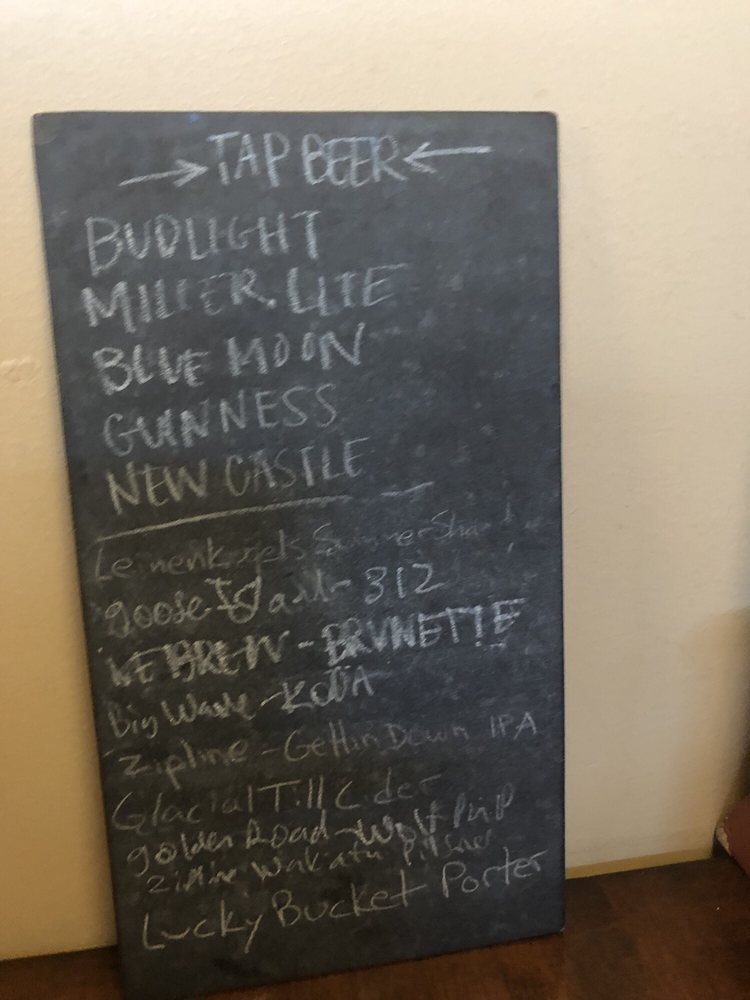 →TAP BEER←
BUDLIGHT
MILLER LITE
BLUE MOON
GUINNESS
NEW CASTLE
Leinenkugels Summer
goose Island 312
BREW - BRUNETTE
Big Wave - KONA
Zipline - Gettin Down IPA
Glacial Till Cider
golden Road - Wolf Pup
Zipline Pilsner
Lucky Bucket Porter